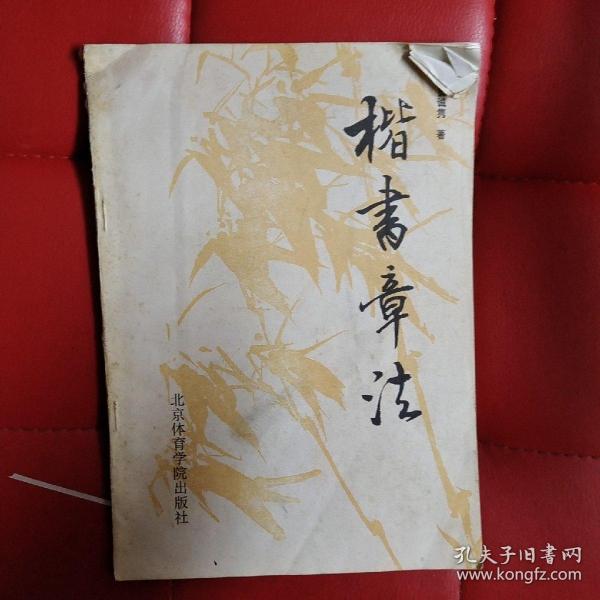 著
楷书章法
北京体育学院出版社
孔夫子旧書网
www.kongfz.com